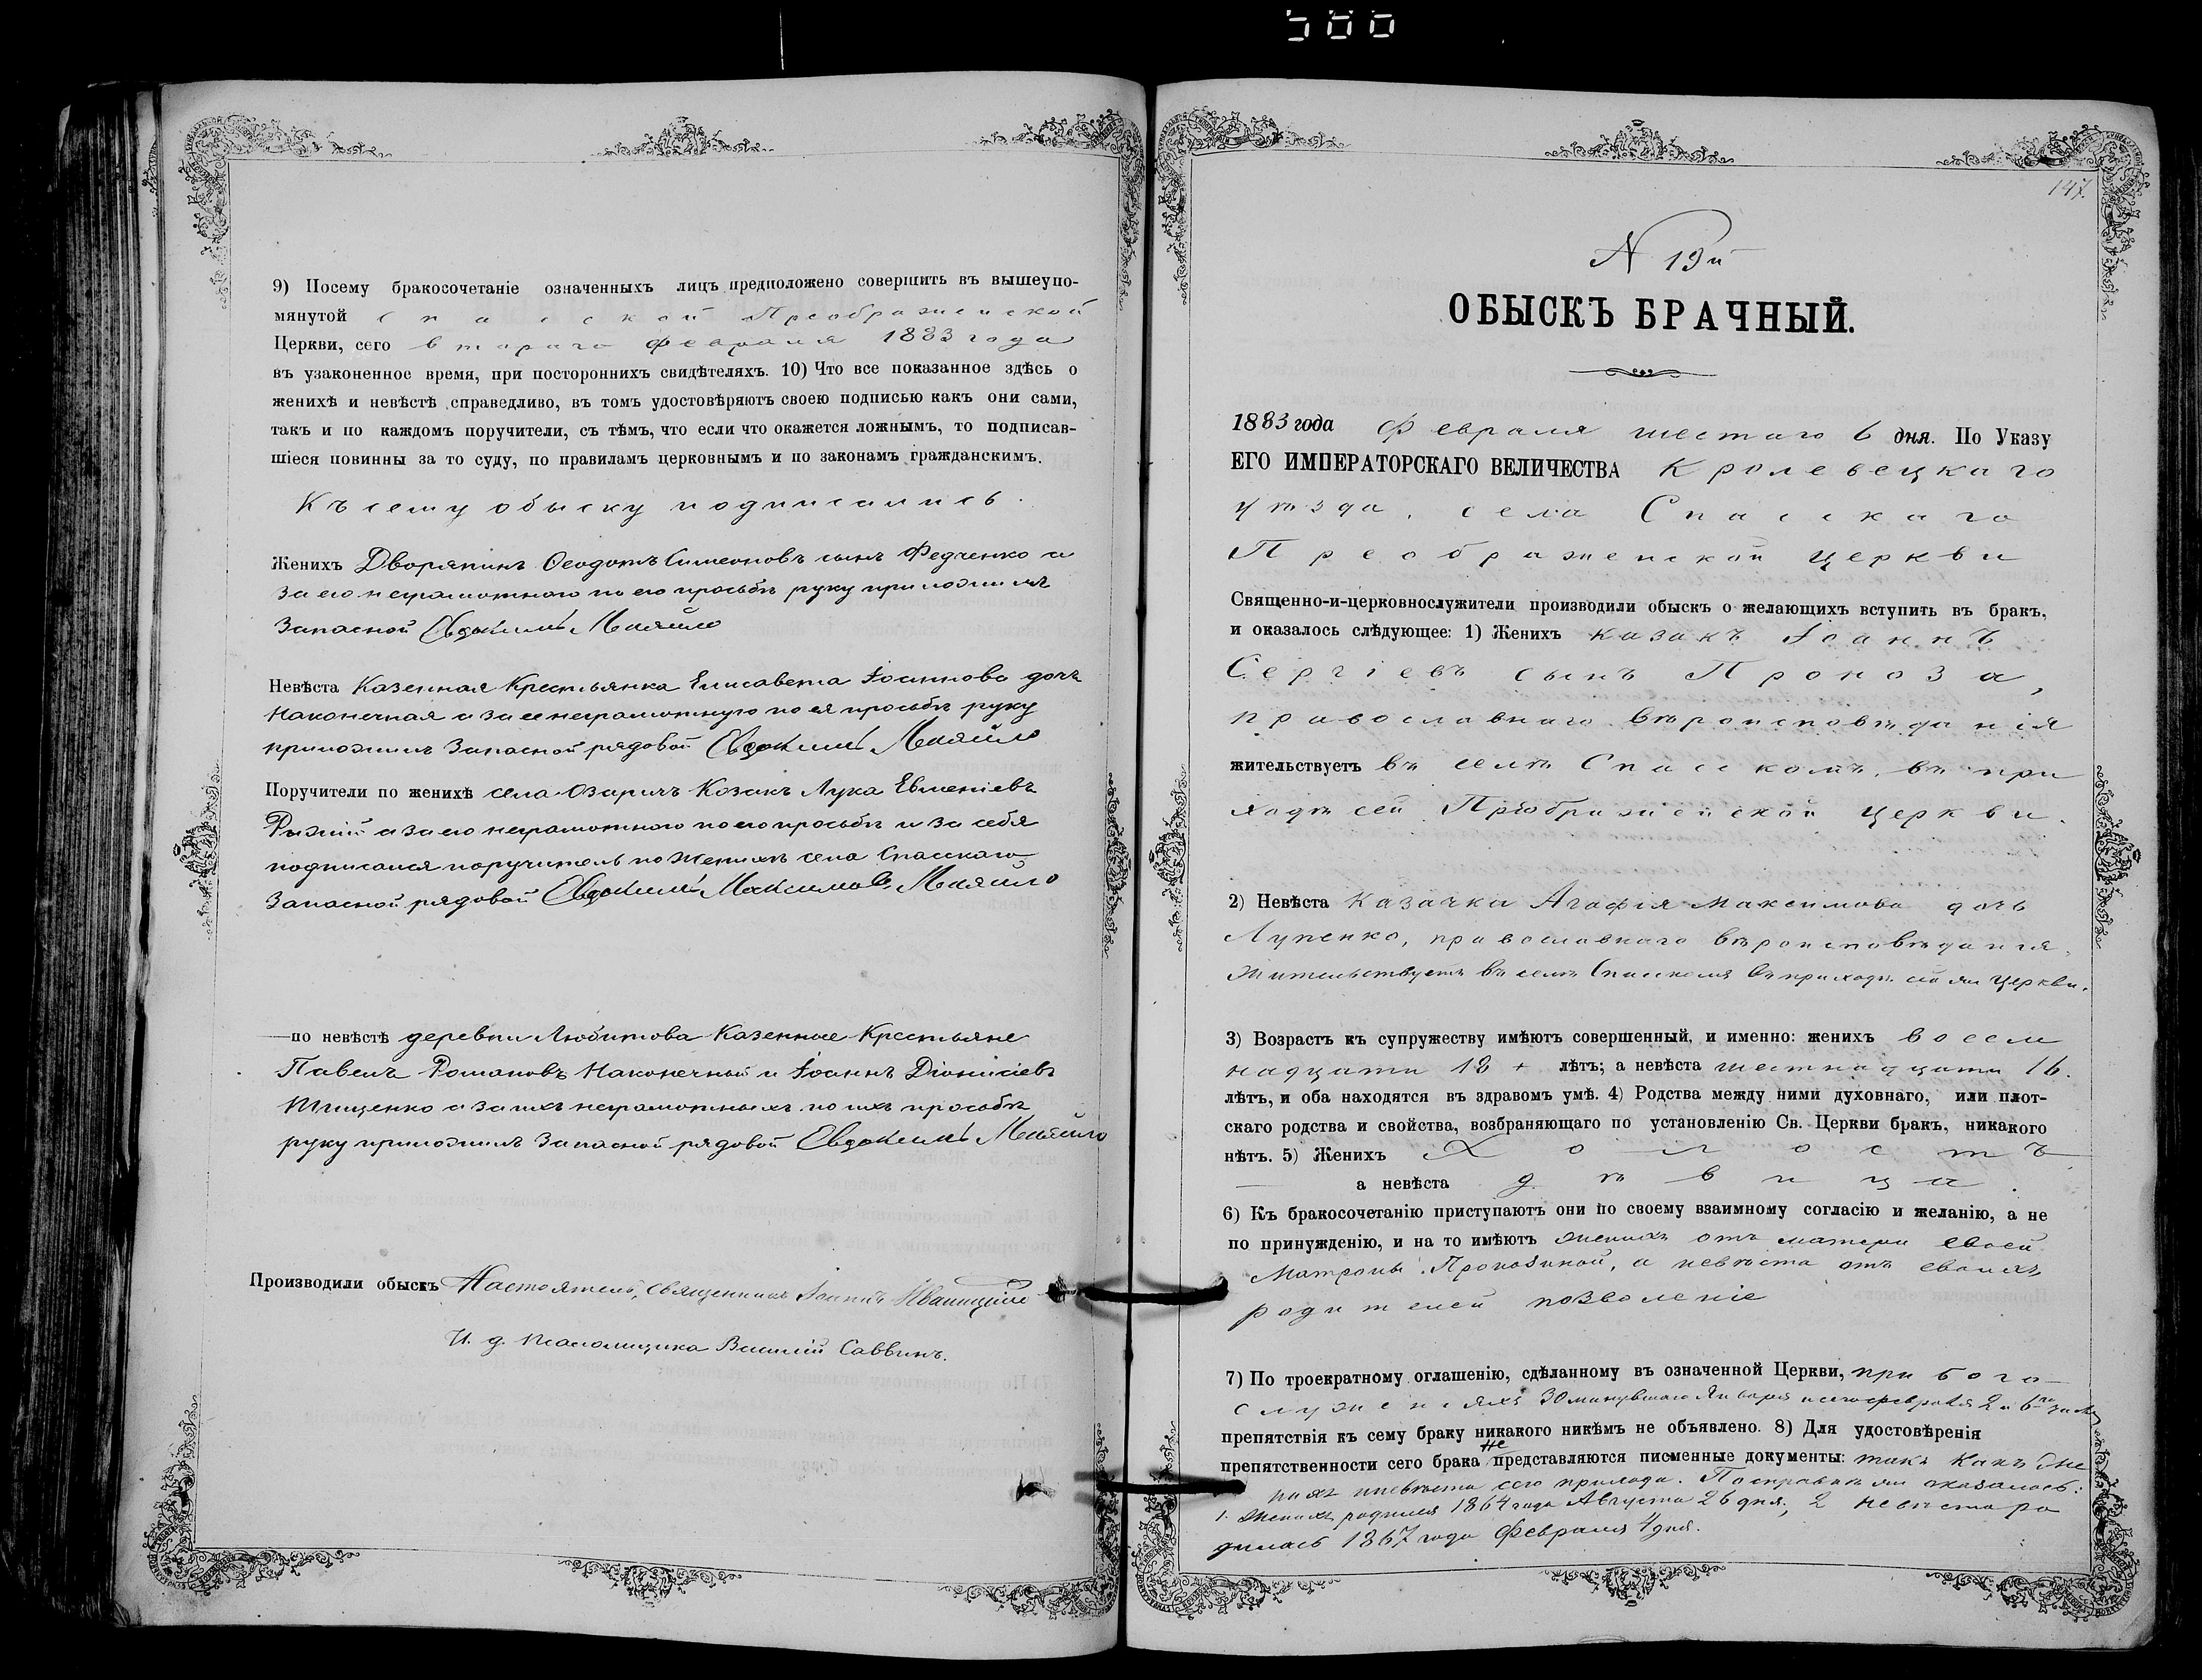 500
9) Посему бракосочетаніе означенныхъ лицъ предположено совершить въ вышеупо-
мянутой Спасской Преображенской
Церкви, сего втораго февраля 1883 года
въ узаконенное время, при постороннихъ свидѣтеляхъ. 10) Что все показанное здѣсь о
женихѣ и невѣстѣ справедливо, въ томъ удостовѣряютъ своею подписью какъ они сами,
такъ и по каждомъ поручители, съ тѣмъ, что если что окажется ложнымъ, то подписав-
шіеся повинны за то суду, по правиламъ церковнымъ и по законамъ гражданскимъ.
Къ сему обыску подписались.
Женихъ Дворянинъ Ѳеодотъ Симеоновъ сынъ Федченко а
за его неграмотного по его просьбѣ руку приложилъ
Запасной Евдокимъ
Невѣста Казенная Крестьянка Елисавета Іоаннова дочь
Наконечная а за ее неграмотную по ея просьбѣ руку
приложилъ Запасной рядовой Евдокимъ
Поручители по женихѣ села Озаричъ Козакъ Лука Евменіевъ
Рыжій а за его неграмотного по его просьбѣ и за себя
подписался поручитель по женихѣ села Спасскаго
Запасной рядовой Евдокимъ Максимовъ
по невѣстѣ деревни Любитова Казенные Крестьяне
Павелъ Романовъ Наконечный и Іоаннъ Діонисіевъ
а за ихъ неграмотныхъ по ихъ просьбѣ
руку приложилъ Запасной рядовой Евдокимъ
Производили обыскъ Настоятель, священникъ Іоаннъ
И. д. псаломщика Василій Саввинъ.
147.
N 19й
ОБЫСКЪ БРАЧНЫЙ.
1883 года Февраля шестаго 6 дня. По Указу
ЕГО ИМПЕРАТОРСКАГО ВЕЛИЧЕСТВА Кролевецкаго
уѣзда, села Спасскаго
Преображенской церкви
Священно-и-церковнослужители производили обыскъ о желающихъ вступить въ бракъ,
и оказалось слѣдующее: 1) Женихъ казакъ Іоаннъ
Сергіевъ сынъ Проноза,
православнаго вѣроисповѣданія
жительствуетъ въ селѣ Спасскомъ, въ при
ходѣ сей Преображенской церкви.
2) Невѣста Казачка Агафія Максимова дочь
Лупенко, православнаго вѣроисповѣданія,
жительствуетъ въ селѣ Спасскомъ въ приходѣ сей же церкви.
3) Возрастъ къ супружеству имѣютъ совершенный, и именно: женихъ восем
надцати 18 + лѣтъ; а невѣста шестнадцати 16.
лѣтъ, и оба находятся въ здравомъ умѣ. 4) Родства между ними духовнаго, или плот-
скаго родства и свойства, возбраняющаго по установленію Св. Церкви бракъ, никакого
нѣтъ. 5) Женихъ Холостъ
а невѣста дѣвица.
6) Къ бракосочетанію приступаютъ они по своему взаимному согласію и желанію, а не
по принужденію, и на то имѣютъ женихъ отъ матери своей
Матроны Пронозиной, а невѣста отъ своихъ
родителей позволеніе
7) По троекратному оглашенію, сдѣланному въ означенной Церкви, при бого-
служеніяхъ 30 минувшаго Января и сего февраля 2 и 6го
препятствія къ сему браку никакого никѣмъ не объявлено. 8) Для удостовѣренія
препятственности сего брака не представляются писменные документы: такъ какъ же
нихъ и невѣста сего прихода. По справкѣ же оказалось:
1. Женихъ родился 1864 года Августа 26 дня; 2 невѣста ро
дилась 1867 года Февраля 4 дня.